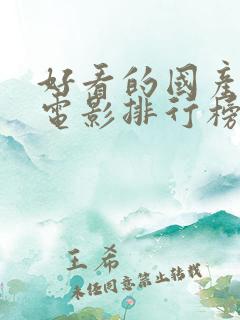 好看的國產
電影排行榜
王希
未经同意禁止转载